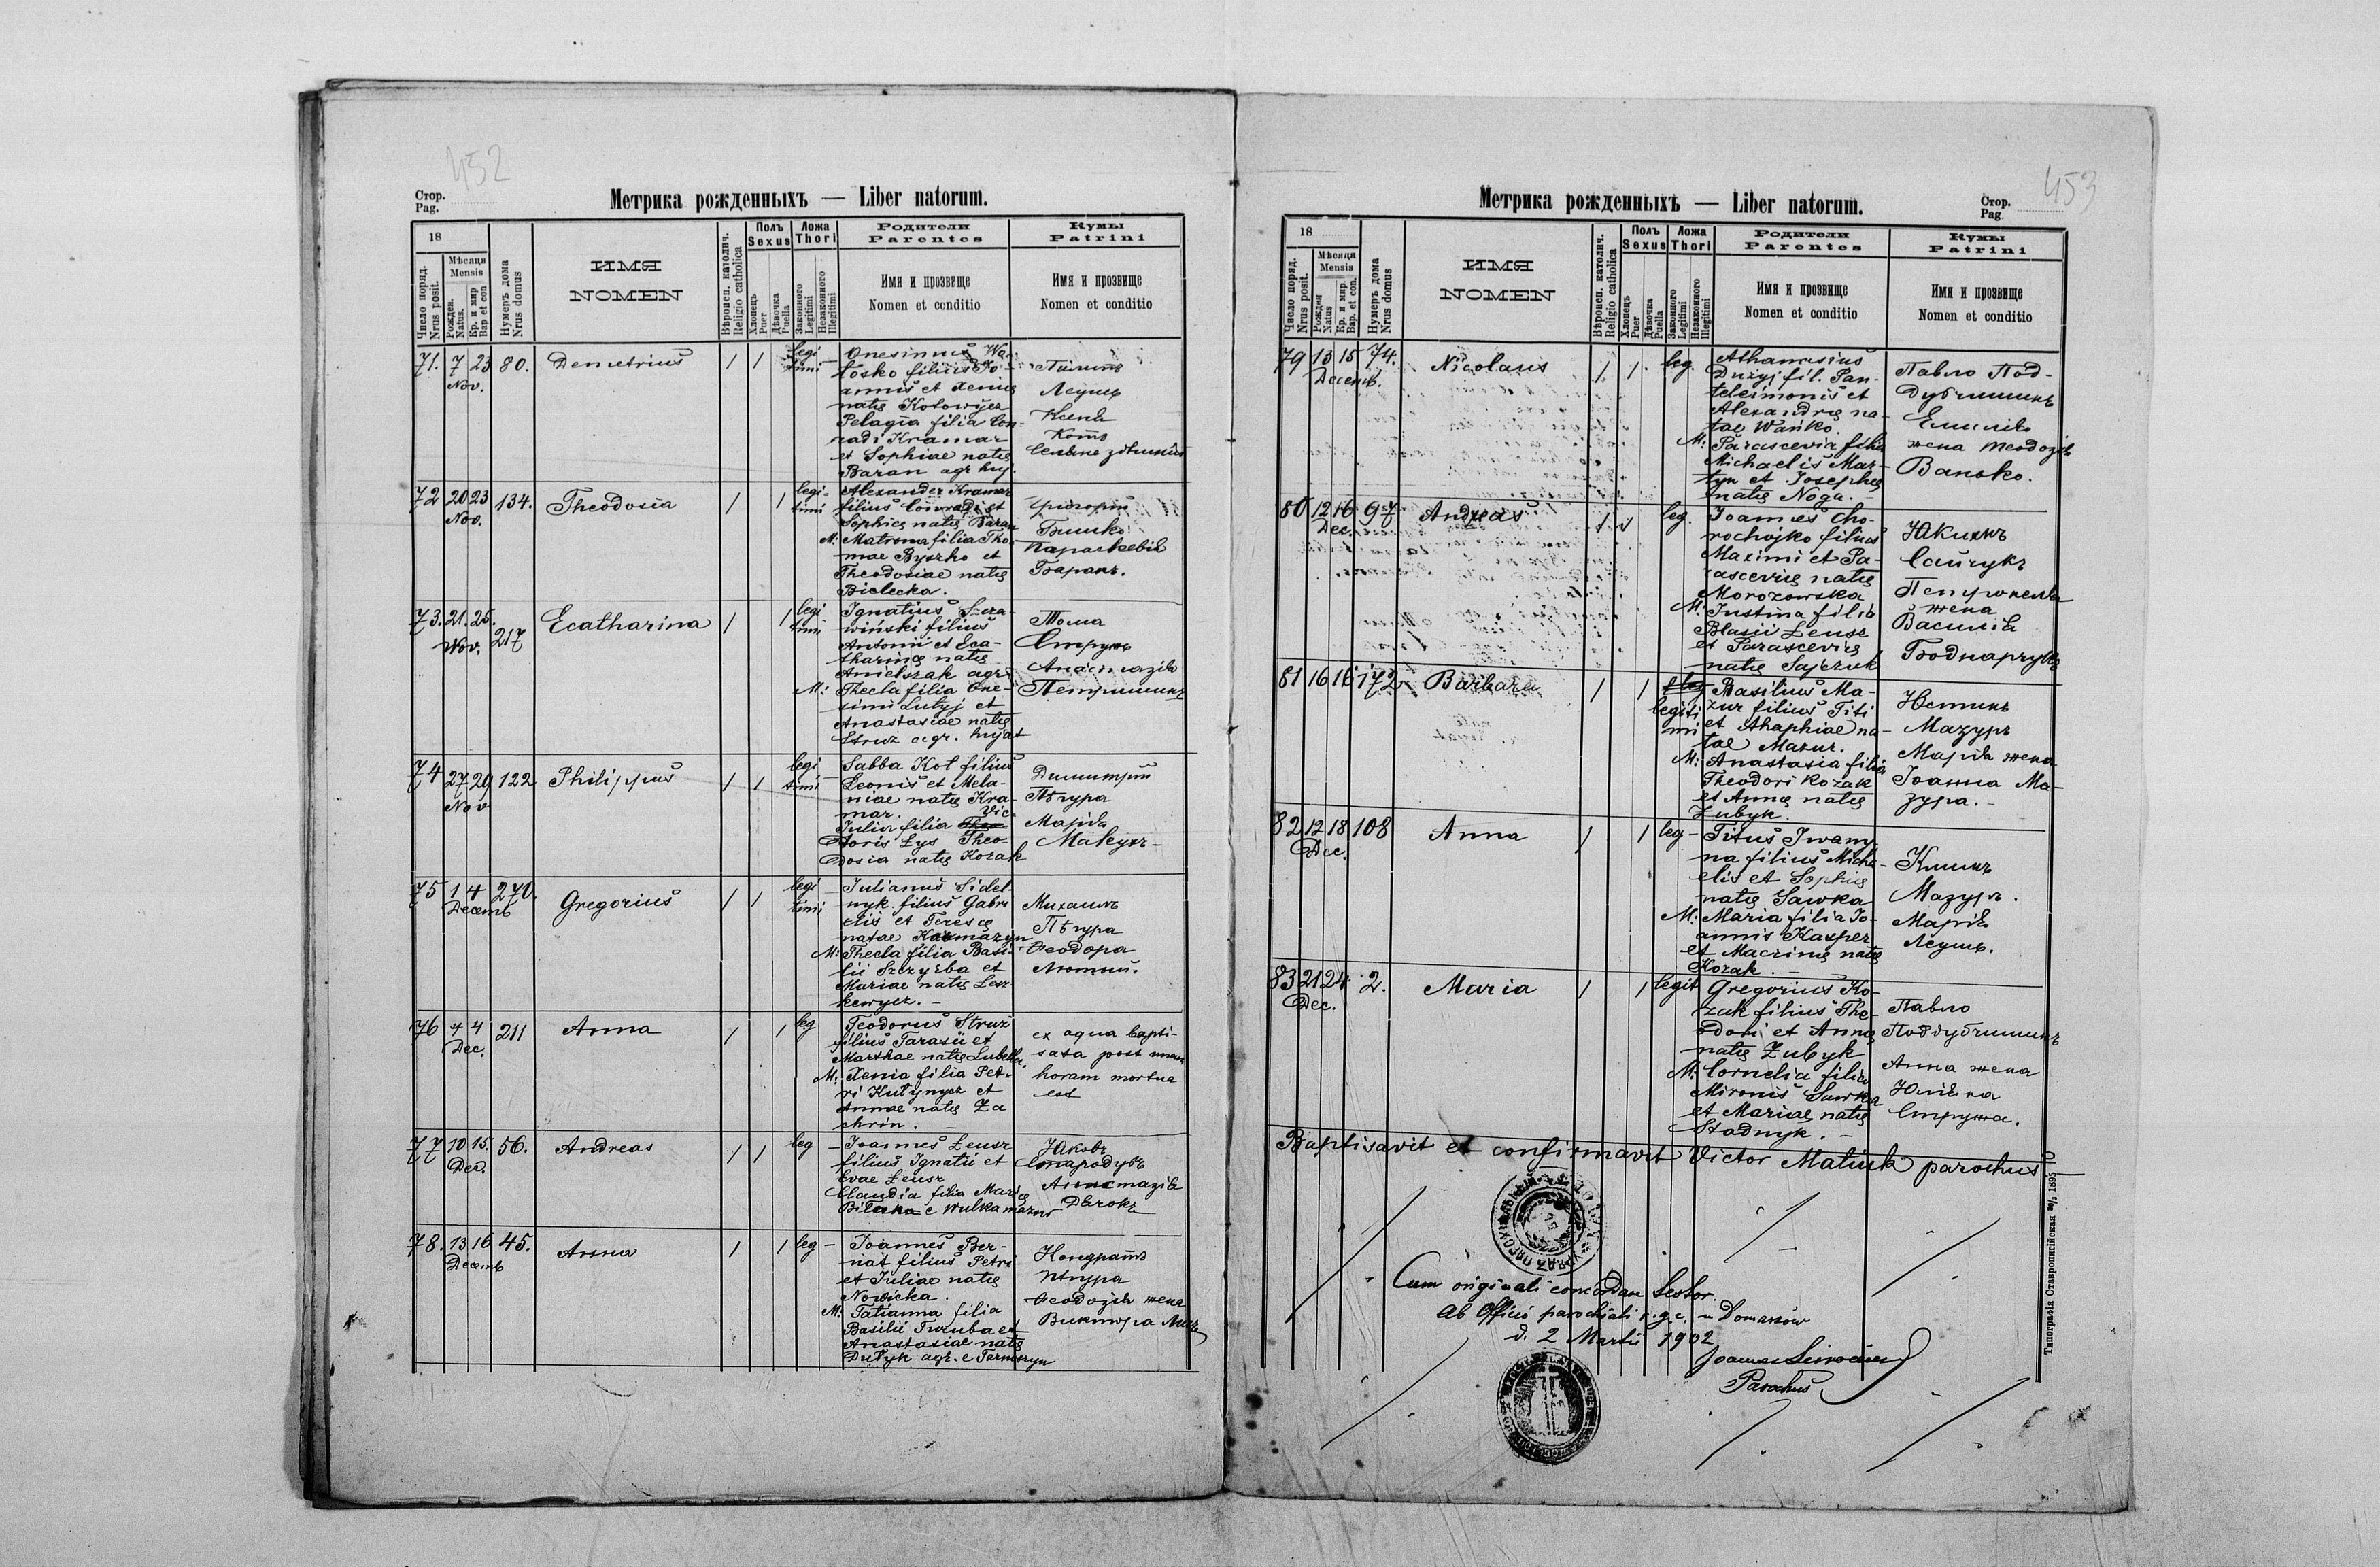 452
Стор.
Pag.
Метрика рожденныхъ — Liber natorum.
18
Мѣсяця
Mensis
Число поряд.
Nrus posit.
Рожден.
Natus.
Кр. и мир
Bap et con
Нумеръ дома
Nrus domus
ИМЯ
NOMEN
Вѣроисп. католич.
Religio catholica
Полъ
Sexus
Хлопець
Puer
Дѣвочка
Puella
Ложа
Thori
Законного
Legitimi
Незаконного
Illegitimi
Родители
Parentes
Имя и прозвище
Nomen et conditio
Кумы
Patrini
Имя и прозвище
Nomen et conditio
71. 7 23 80. Demetrius 1 1 legi
Nov. timi
Onesimus Wa-
tosko filius Jo-
annis et Xenię
natę Kotowycz
Pelagia filia Con-
radi Kramar
et Sophiae natę
Baran agr. huj.
Пилипъ
Леушъ
Ксенія
Котъ
72 20 23 134. Theodosia 1 1 legi-
Nov. timi
Alexander Kramar
filius Conradi et
Sophię natę Baran
M: Matrona filia Tho-
mae Byszko et
Theodosiae natę
Bielecka.
Григорій
Бишко
Параскевія
Баранъ.
73. 21. 25. 217 Ecatharina 1 1 legi
Nov. timi
Ignatius Szcza-
wiński filius
Antonii et Eca-
tharinę natę
Anielszak agr.
M: Thecla filia One-
simi Lutyj et
Anastasiae natę
Struz agr. hujat
Тома
Струзъ
Анастазія
Петришинъ
74 27 29 122 Philippus 1 1 legi
Nov timi
Sabba Kot filius
Leonis et Mela-
niae natę Kra-
mar. Vic-
Julia filia
toris Łys Theo-
dosia natę Kozak
Димитрій
Пѣгура
Марія
Макухъ-
75 1 4 270. Gregorius 1 1 legi
Decemb timi
Julianus Sidel-
nyk filius Gabri
elis et Teresę
natae Karmazyn
M: Thecla filia Basi-
lii Szczyrba et
Mariae natę Lesz
kewycz. -
Михаилъ
Пѣгура
Ѳеодора
Лютый.
76 4 4 211 Anna 1 1 leg
Dec.
Teodorus Struz
filius Tarasii et
Marthae natę Lubelka.
M: Xenia filia Pet-
ri Kutynycz et
Annae natę Za
chrin. -
ex aqua bapti-
sata post unam
horam mortua
est
77 10 15. 56. Andreas 1 1 leg
Dec.
Joannes Leusz
filius Ignatii et
Evae Leusz
Claudia filia Marię
Bilana e Wulka mazow
Яковъ
Стародубъ
Анастазія
Дѣрокъ
78. 13 16 45. Anna 1 1 leg -
Decemb
Joannes Ber-
nat filius Petri
et Juliae natę
Nowicka.
M: Tatianna filia
Basilii Truba et
Anastasiae natę
Dutyk agr. e Tarnoszyn
Кондратъ
Пѣгура
Ѳеодозія жена
Виктора
453
Метрика рожденныхъ — Liber natorum.
Стор.
Pag.
18
Мѣсяця
Mensis
Число поряд.
Nrus posit.
Рожден
Natus
Кр. и мир.
Bap. et con.
Нумеръ дома
Nrus domus
ИМЯ
NOMEN
Вѣроисп. католич.
Religio catholica
Полъ
Sexus
Хлопець
Puer
Дѣвочка
Puella
Ложа
Thori
Законного
Legitimi
Незаконного
Illegitimi
Родители
Parentes
Имя и прозвище
Nomen et conditio
Кумы
Patrini
Имя и прозвище
Nomen et conditio
79 13 15 74. Nicolaus 1 1. leg.
Decemb.
Athanasius
Dużyj fil. Pan-
teleimonis et
Alexandrę na-
tae Wańko.
M: Parascevia filia
Michaelis Mar-
tyn et Josephę
natę Noga. -
Павло Под-
дубчишинъ
Емилія
жена Теодозія
Ванько.
80 12 16 97 Andreas 1 1 leg.
Dec.
Joannes Cho-
rochojko filius
Maximi et Pa-
rascevię natę
Morozowska
M: Justina filia
Blasii Leusz
et Parascevię
natę Sajczuk
Якимъ
Сайчукъ
Петронела
жена
Василія
Боднарчукъ
81 16 16 172 Barbara 1 1 legiti
mi
Basilius Ma-
zur filius Titi
et Ahaphiae na-
tae Mazur.
M: Anastasia filia
Theodori Kozak
et Annę natę
Zubyk.
Юстинъ
Мазуръ
Марія жена
Іоанна Ма-
зура. -
82 12 18 108 Anna 1 1 leg -
Dec.
Titus Iwany-
na filius Micha-
elis et Sophię
natę Sawka
M: Maria filia Jo-
annis Kasper
et Macrinę natę
Kozak. -
Климъ
Мазуръ.
Марія
Леушъ.
83 21 24 2. Maria 1 1 legit
Dec.
Gregorius Ko-
zak filius The-
odori et Annę
natę Zubyk
M: Cornelia filia
Mironis Sawka
et Mariae natę
Stadnyk. -
Павло
Поддубчишинъ
Анна жена
Юліяна
Струза.
Baptisavit et confirmavit Victor Matiuk parochus
Cum originali concordare testor.
Ab Officio parochiali r. g. c. in Domaszów
d. 2 Martii 1902
Parochus
Типографія Ставропигійская
1895